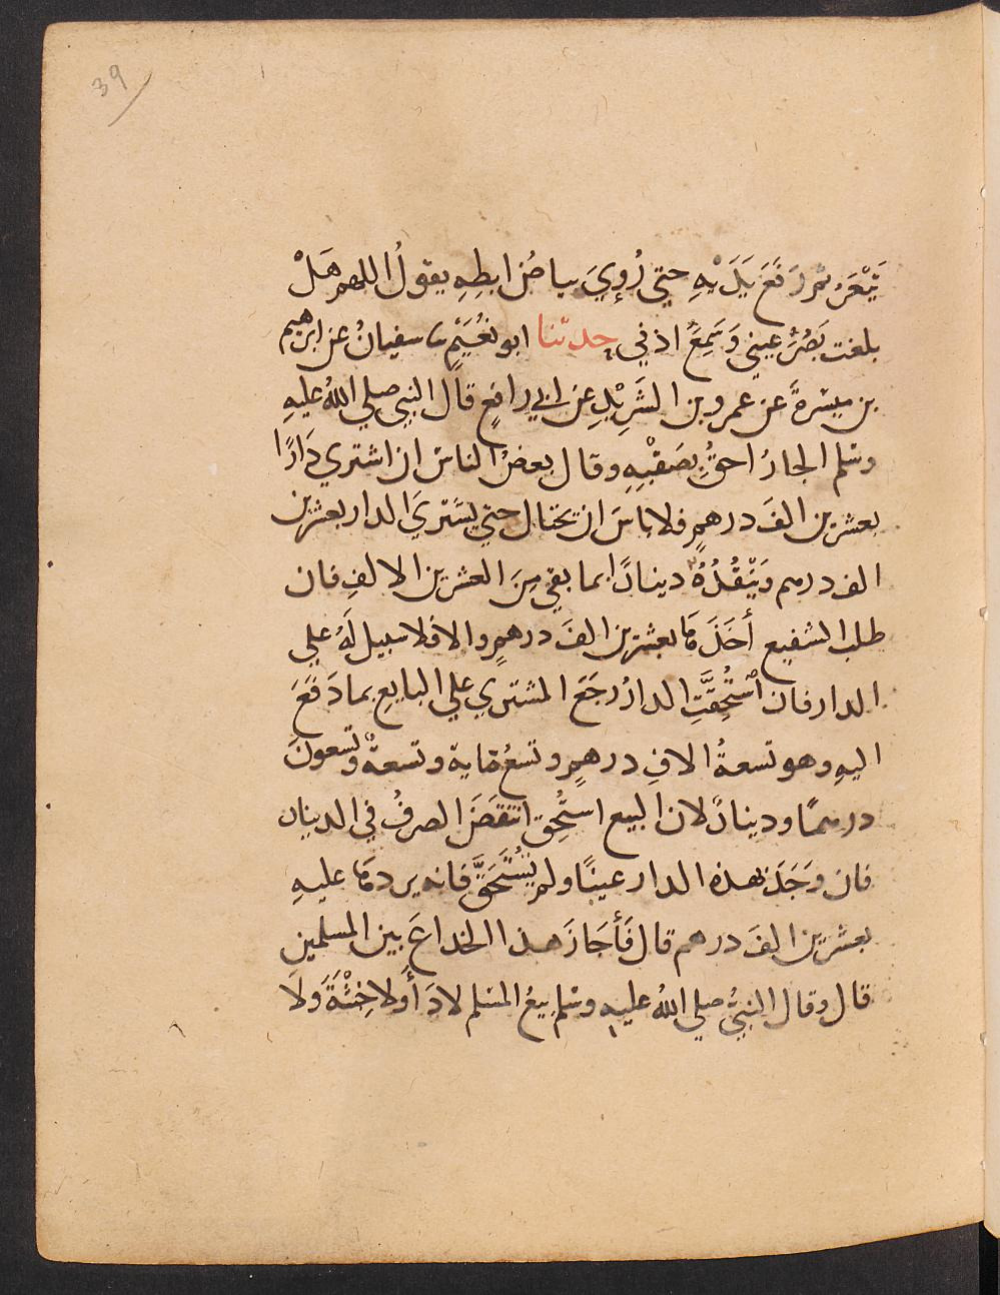 39
تَيْعَرُ ثم رَفَعَ يَدَيْهِ حتي رُوِيَ بياضُ ابطِهِ يقولُ اللهم هَلْ
بلغت بَصُرَ عيني وَسَمِعَ اذني حدثنا ابو نُعَيْمٍ ثنا سفيانُ عن ابرهيم
بن ميسَرةَ عن عمرو بن الشَرِيْدِ عن ابي رافعٍ قال النبي صلي اللهُ عليهِ
وسَلم الجارُ احقُّ بصَقْبِهِ وقال بعضُ الناس ان اشتري دَارًا
بعشرين الفَ درهمٍ فلا باسَ ان يحتال حتي يشتريَ الدار بعشرين
الف درهم وَيَنْقُدُهُ دينارًا بما بقي مِنَ العشرين الالفِ فان
طلب الشفيع أخَذَهَا بعشرين الفَ درهمٍ والا فلا سبيل لَهُ علي
الدار فان اسْتُحِقَّتِ الدارُ رجَعَ المشتري علي البايعِ بما دَفَعَ
اليهِ وهو تسعةُ الافِ درهمٍ وتسعُ مَاية وتسعةٌ وتسعونَ
درهمًا ودينارٌ لان البيع استُحِق انتقَضَ الصرفُ في الدينار
فان وَجَدَ بهذه الدار عيبًا ولم يُسْتَحَقَّ فانه يردهَا عليهِ
بعشرين الفَ درهم قال فَأَجَازَ هذا الخداعَ بين المسلمين
قال وقال النبيُّ صلي اللهُ عليهِ وسَلم بيعُ المسلم لا دَاَ ولا خِبْثَةَ ولا